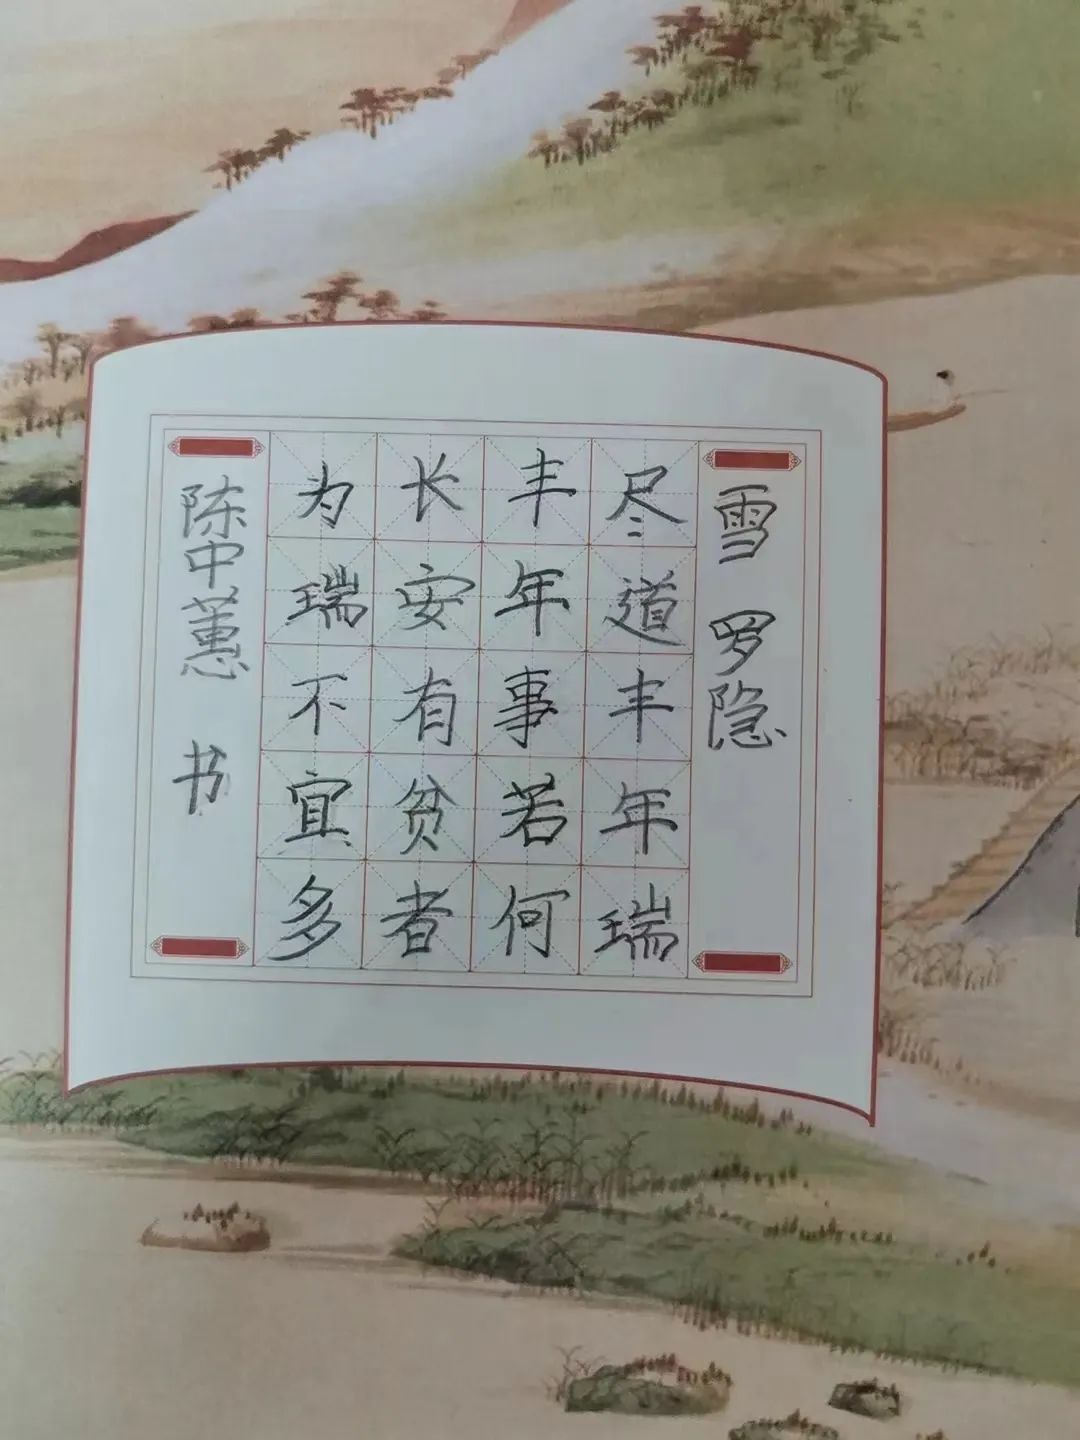 雪 罗隐
尽道丰年瑞
丰年事若何
长安有贫者
为瑞不宜多
陈中蕙 书